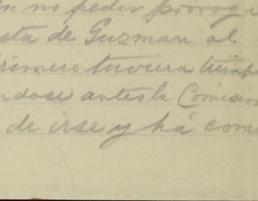 n no pedir prorog
sta de Guzman al
rimero tuviera tiemp
ndose antes la Comision
de irse y há com